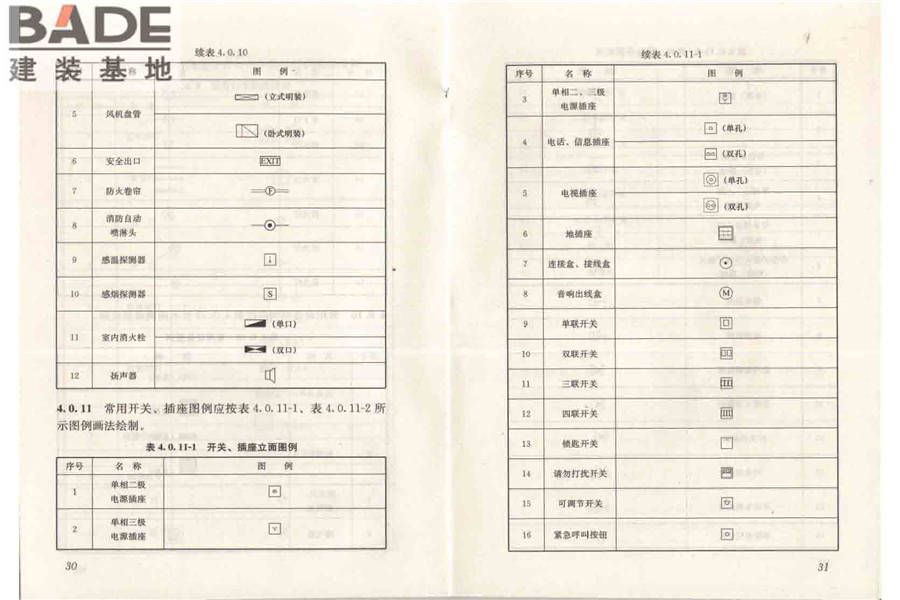 BADE
建装基地
续表4.0.10
称 图 例
5 风机盘管 (立式明装)
(卧式明装)
6 安全出口 EXIT
7 防火卷帘 F
8 消防自动
喷淋头
9 感温探测器
10 感烟探测器 S
11 室内消火栓 (单口)
(双口)
12 扬声器
4.0.11 常用开关、插座图例应按表4.0.11-1、表4.0.11-2所
示图例画法绘制。
表4.0.11-1 开关、插座立面图例
序号 名 称 图 例
1 单相二极
电源插座
2 单相三极
电源插座
30
续表4.0.11-1
序号 名 称 图 例
3 单相二、三极
电源插座
4 电话、信息插座 (单孔)
(双孔)
5 电视插座 (单孔)
(双孔)
6 地插座
7 连接盒、接线盒
8 音响出线盒 M
9 单联开关
10 双联开关
11 三联开关
12 四联开关
13 锁匙开关
14 请勿打扰开关
15 可调节开关
16 紧急呼叫按钮
31